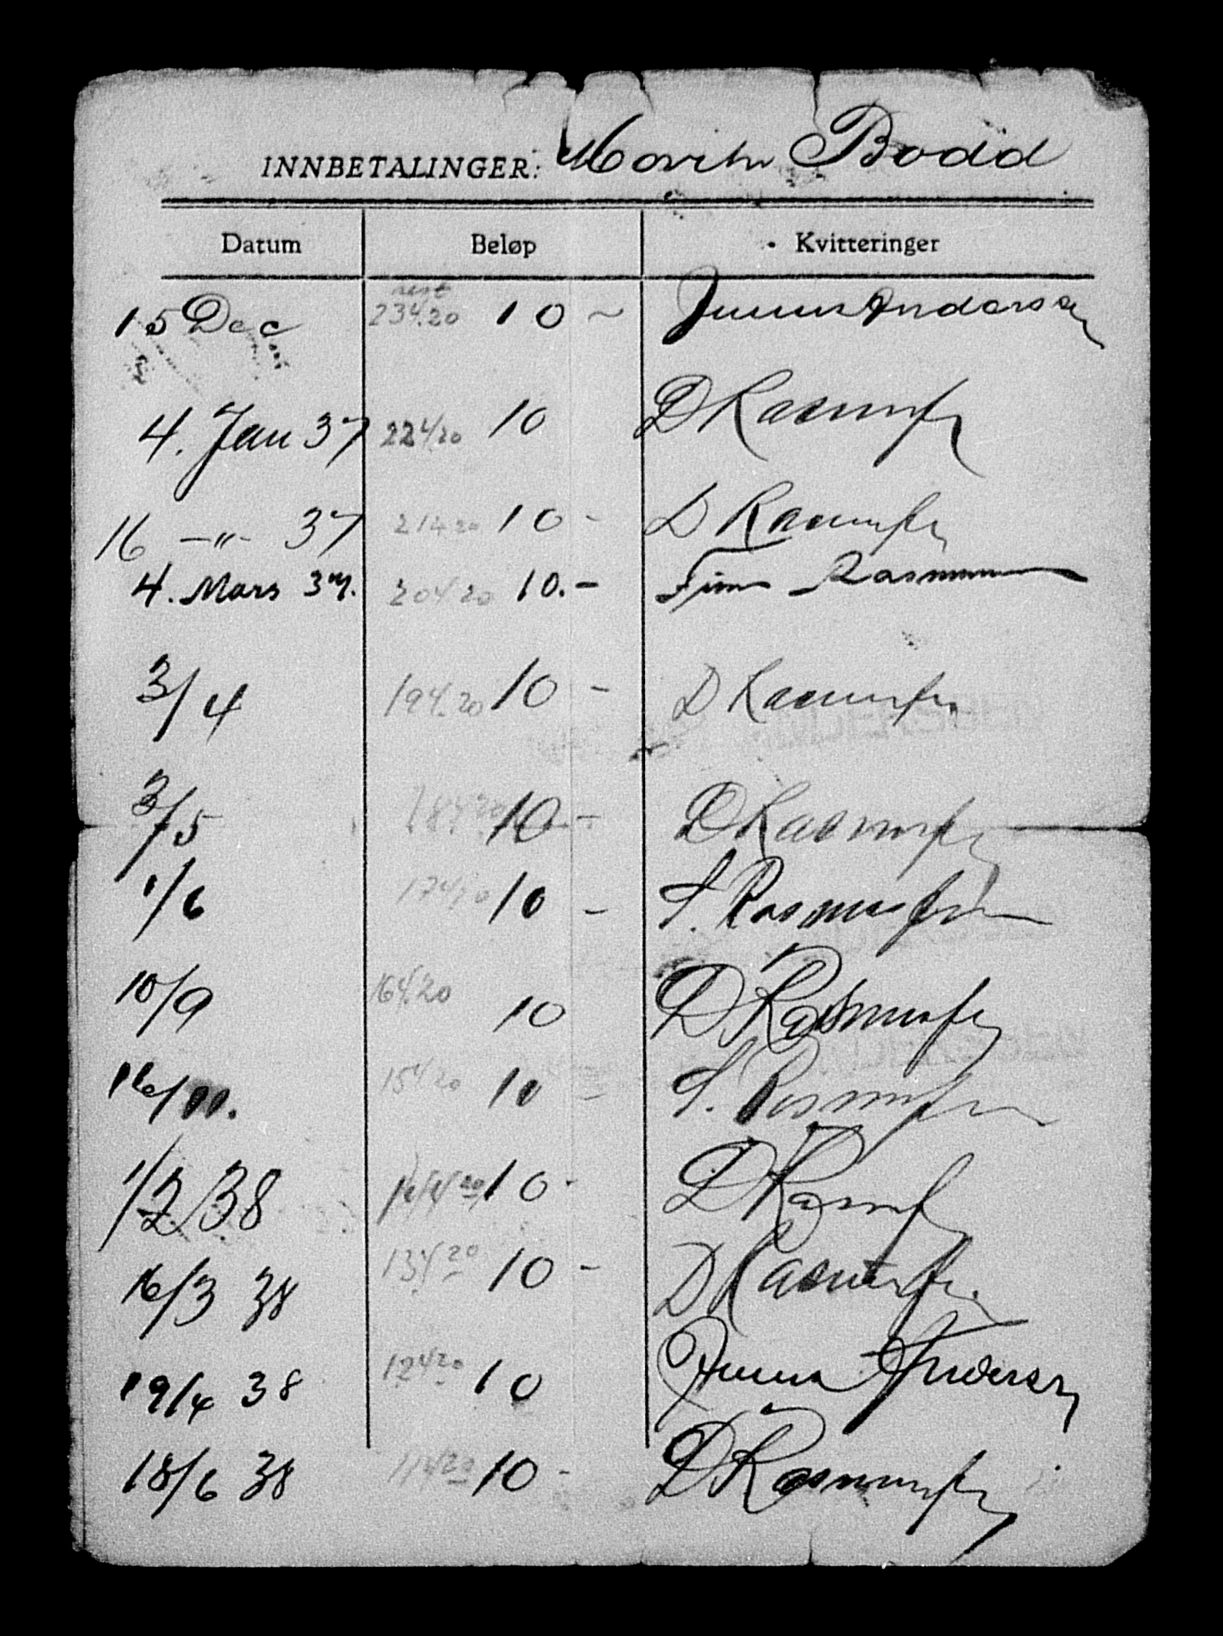 INNBETALINGER: Moritz Bodd
Datum Beløp Kvitteringer
rest
15 Dec 234.20 10 ~ Andersen
4. Jan 37 224.20 10 D Rasmussen
16 -"- 37 214.20 10 - D Rasmussen
4. Mars 37. 204.20 10.- Finn Rasmussen
3/4 194.20 10 - D Rasmussen
3/5 184.20 10 - D Rasmussen
1/6 174.20 10 - S. Rasmussen
10/9 164.20 10 D. Rasmussen
16/11. 154.20 10 - S. Rasmussen
1/2 38 144.20 10 - D Rasmussen
16/3 38 134.20 10 - D Rasmussen
19/4 38 124.20 10 Andersen
18/6 38 114.20 10 - D Rasmussen